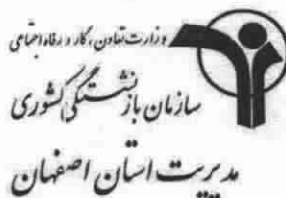 وزارت تعاون، کار و رفاه اجتماعی
سازمان بازنشستگی کشوری
مدیریت استان اصفهان